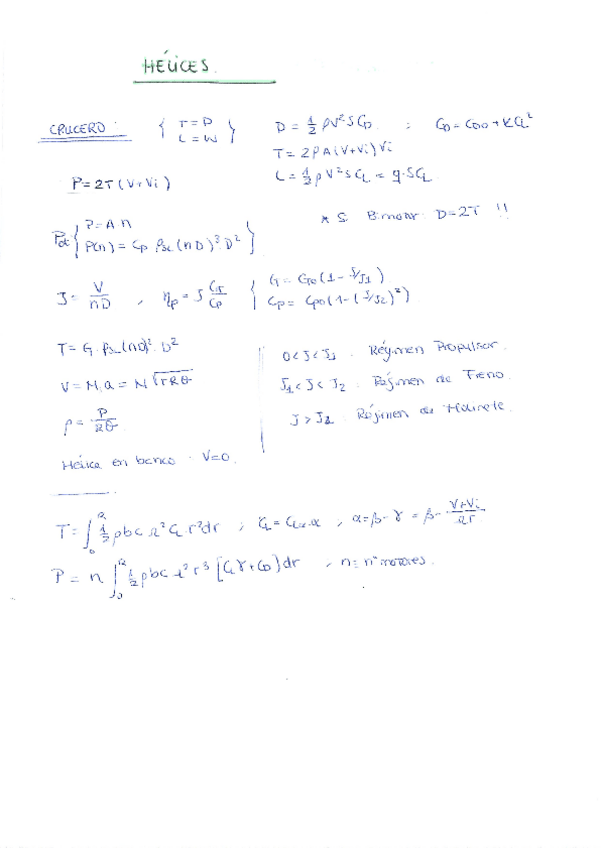 HÉLICES.
CRUCERO: { T = D
L = W }
D = 1/2 ρV²SC_D ; C_D = C_D0 + KC_L²
T = 2ρA(V+Vi)Vi
L = 1/2 ρV²SC_L = q·SC_L
P = 2T(V+Vi)
* S. Bimotor: D=2T !!
Pot { P = A n
P(n) = C_P ρ_SL (nD)³ D² }
J = V/nD , η_p = J C_T/C_P { C_T = C_T0 (1 - J/J1)
C_P = C_P0 (1 - (J/J2)²) }
T = C_T ρ_SL (nD)² D²
V = M·a = M√(γRθ)
ρ = P/Rθ
Hélice en banco · V=0.
0<J<J1 . Régimen Propulsor.
J1<J<J2 . Régimen de Freno
J>J2 . Régimen de Molinete
T = ∫₀ᴿ 1/2 ρbc Ω² C_L r² dr ; C_L = C_Lα α , α = β - γ = β - (V+Vi)/Ωr
P = n ∫₀ᴿ 1/2 ρbc Ω² r³ [C_L γ + C_D] dr , n = nº motores.